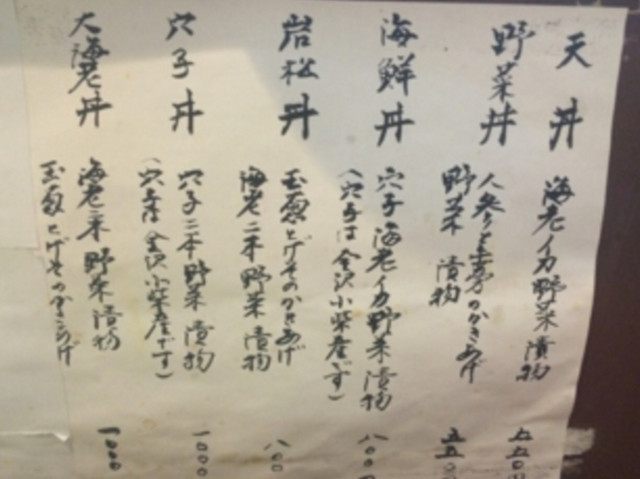 天丼
海老イカ野菜漬物
野菜丼
人参と玉葱のかきあげ
野菜 漬物
五五〇
海鮮丼
穴子海老イカ野菜漬物
(穴子は金沢小柴産です)
八〇〇
岩松丼
玉葱とげそのかきあげ
海老二本野菜漬物
八〇〇
穴子丼
穴子二本野菜漬物
(穴子は金沢小柴産です)
一〇〇〇
大海老丼
海老一本野菜漬物
玉葱とげそのかきあげ
一〇〇〇